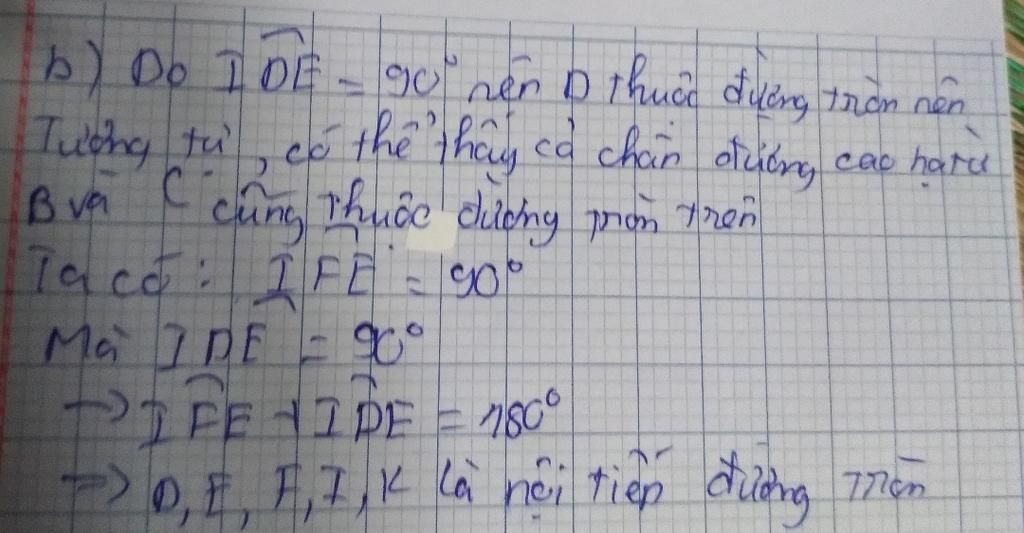 b) Do IDE = 90° nên D thuộc đường tròn nên
Tương tự, có thể thấy cả chân đường cao hạ từ
B và C cũng thuộc đường tròn trên
Ta có: IFE = 90°
Mà IDE = 90°
→ IFE + IDE = 180°
→ D, E, F, I, K là nội tiếp đường tròn